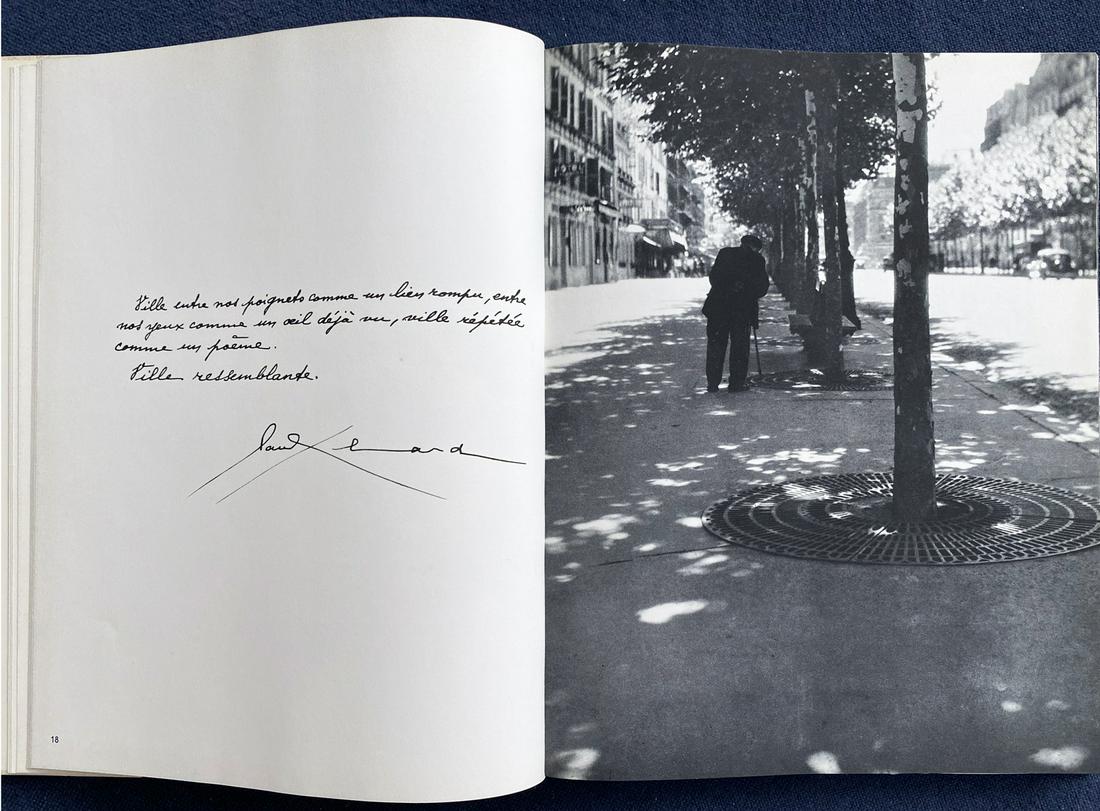 Ville entre nos poignets comme un lien rompu, entre
nos yeux comme un œil déjà vu, ville répétée
comme un poème.
Ville ressemblante.
Paul Eluard
18